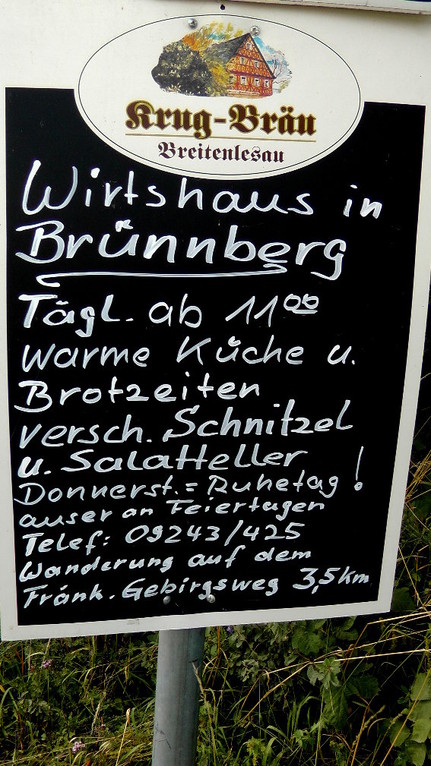 Krug-Bräu
Breitenlesau
Wirtshaus in
Brünnberg
Tägl. ab 11⁰⁰
warme Küche u.
Brotzeiten
versch. Schnitzel
u. Salatteller
Donnerst. = Ruhetag !
auser an Feiertagen
Telef: 09243/425
Wanderung auf dem
Fränk. Gebirgsweg 3,5 km